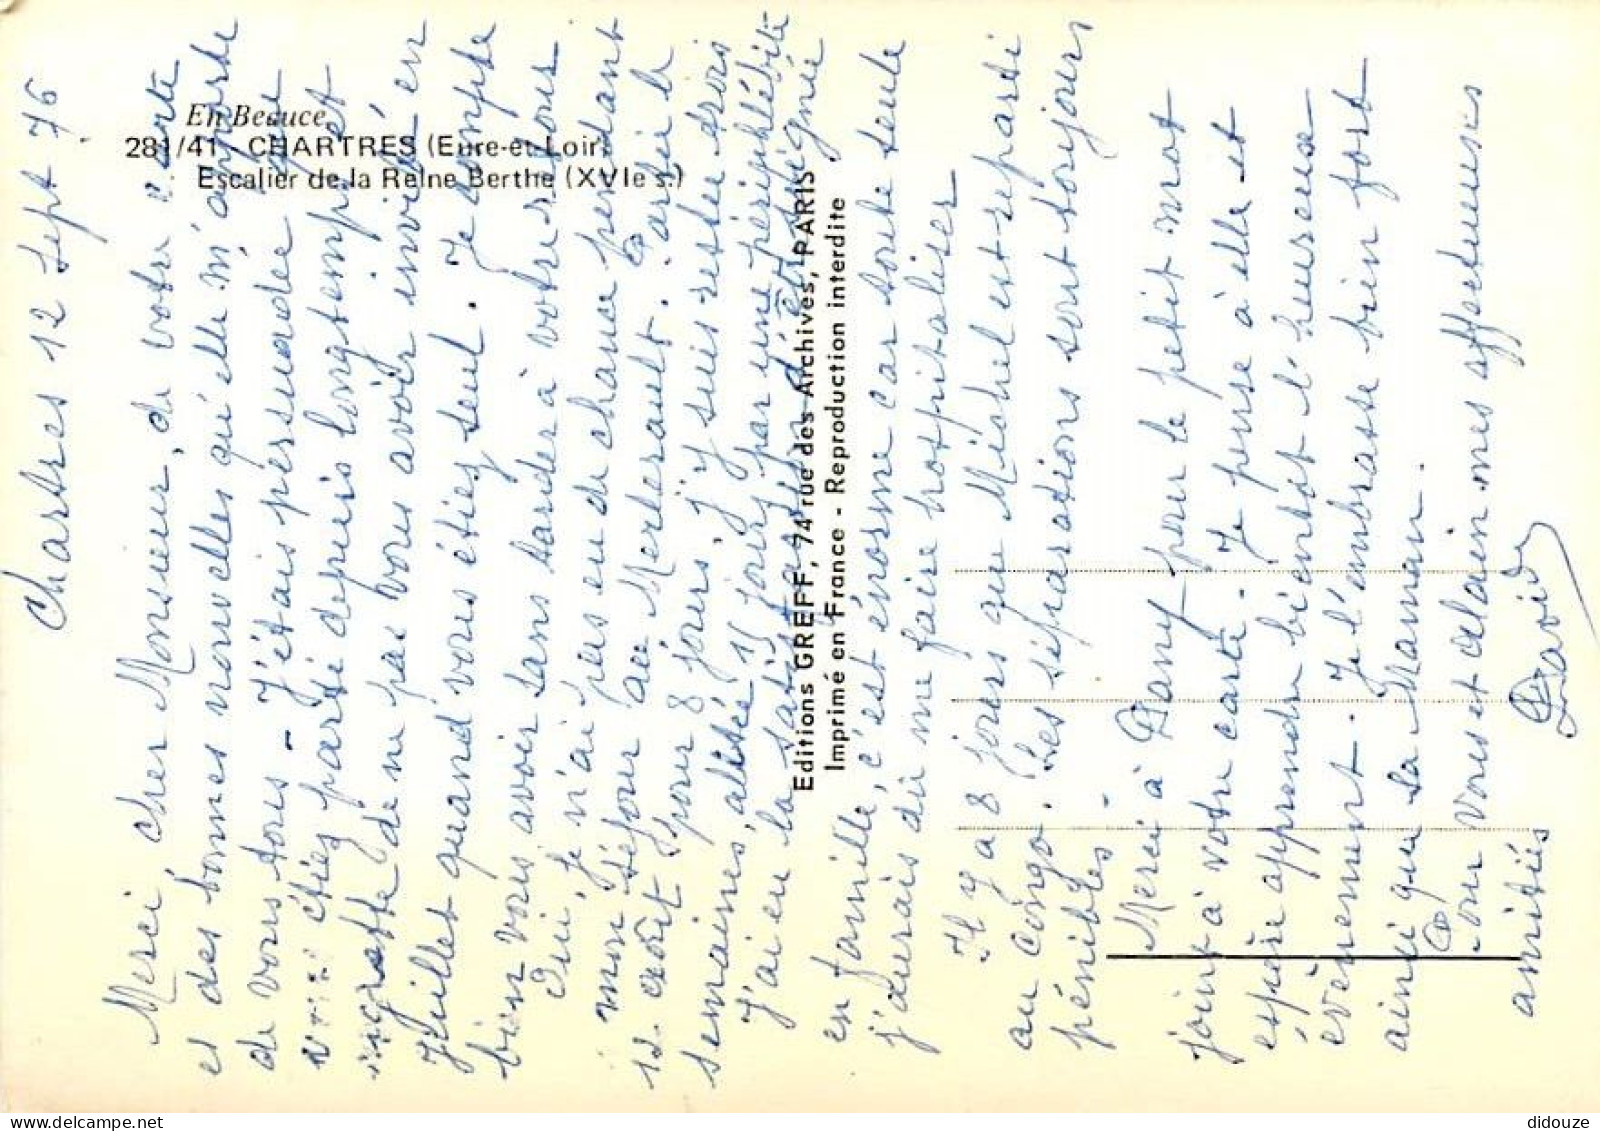 En Beauce
281/41 - CHARTRES (Eure-et-Loir)
Escalier de la Reine Berthe (XVIe s.)
Editions GREFF, 74 rue des Archives, PARIS
Imprimé en France - Reproduction interdite
Chartres 12 Sept 76
Merci, cher Monsieur, de votre carte
et des bonnes nouvelles qu'elle m'apporte
de vous tous - J'étais persuadée que
vous étiez parti depuis longtemps et
regrette de ne pas vous avoir invité en
Juillet quand vous étiez seul. Je compte
bien vous avoir sans tarder à votre retour
Oui, je n'ai pas eu de chance pendant
mon séjour au Merlerault. Partie le
12 août pour 8 jours, j'y suis restée trois
semaines, alitée 15 jours par une périphlébite
J'ai eu la satisfaction d'être soignée
en famille, c'est énorme car sorte seule
j'aurais dû me faire hospitaliser
Il y a 8 jours que Michel est reparti
au Congo. Les séparations sont toujours
pénibles -
Merci à Dany pour le petit mot
joint à votre carte. Je pense à elle et
espère apprendre bientôt l'heureux
evènement. Je l'embrasse bien fort
ainsi que sa Maman.
Pour vous et Alain mes affectueuses
amitiés
David
didouze